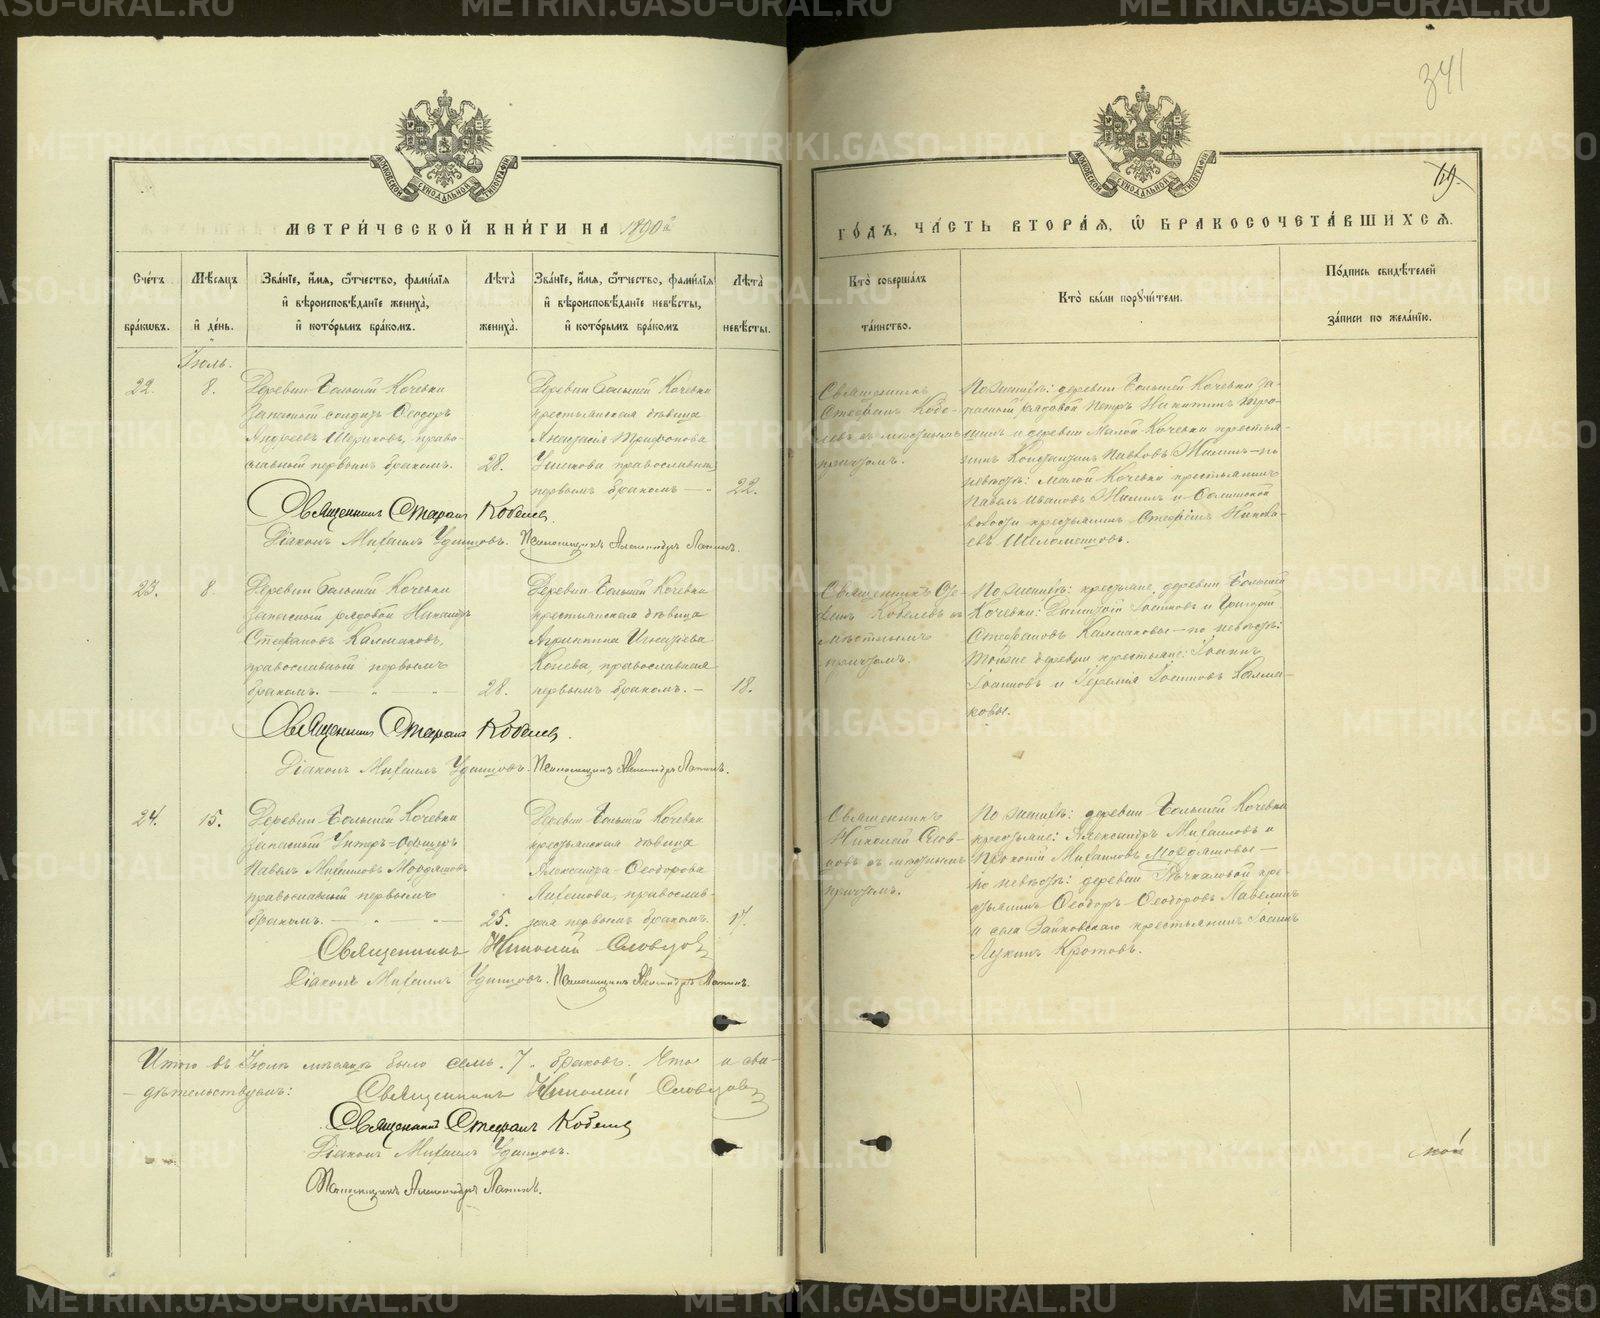 341
69.
МОСКОВСКОЙ СѴНОДАЛЬНОЙ ТИПОГРАФІИ
МОСКОВСКОЙ СѴНОДАЛЬНОЙ ТИПОГРАФІИ
МЕТРИ́ЧЕСКОЙ КНИ́ГИ НА 1890й
ГО́ДЪ, ЧА́СТЬ ВТОРА́Я, Ѡ҆ БРАКОСОЧЕТА́ВШИХСЯ.
Сче́тъ бра́кѡвъ.
Мѣ́сяцъ и҆ де́нь.
Зва́ніе, и҆́мя, ѻ҆́тчество, фами́лія и҆ вѣроисповѣ́даніе жениха̀, и҆ кото́рымъ бра́комъ.
Лѣ́та жениха̀.
Зва́ніе, и҆́мя, ѻ҆́тчество, фами́лія и҆ вѣроисповѣ́даніе невѣ́сты, и҆ кото́рымъ бра́комъ
Лѣ́та невѣ́сты.
Кто̀ соверша́лъ та́инство.
Кто̀ бы́ли порꙋчи́тели.
По́дпись свидѣ́телей за́писи по жела́нію.
Іюль.
22.
8.
Деревни Большей Кочевки
запасный солдатъ Ѳеодоръ
Андреевъ Шериковъ, право-
славный первымъ бракомъ.
28.
Деревни Большей Кочевки
крестьянская дѣвица
Анастасія Трифонова
православная
первымъ бракомъ
22.
Священникъ
Стефанъ Кобе-
левъ съ мѣстнымъ
причтомъ.
По женихѣ: деревни Большей Кочевки за-
пасный рядовой Петръ Никитинъ
и деревни Малой Кочевки крестья-
нинъ Константинъ Павловъ Жилинъ – по
невѣстѣ: Малой Кочевки крестьянинъ
Павелъ Ивановъ Жилинъ и
волости крестьянинъ Стефанъ Никола-
евъ Шеломенцовъ.
Священникъ Стефанъ Кобелевъ.
Діаконъ Михаилъ Удинцовъ. Псаломщикъ Александръ Лапинъ.
23.
8.
Деревни Большей Кочевки
запасный рядовой Никандръ
Стефановъ Калмаковъ,
православный первымъ
бракомъ.
28.
Деревни Большей Кочевки
крестьянская дѣвица
Агриппина Игнатіева
Конева, православная
первымъ бракомъ. –
18.
Священникъ Сте-
фанъ Кобелевъ съ
мѣстнымъ
причтомъ.
По женихѣ: крестьяне, деревни Большей
Кочевки: Димитрій Іоанновъ и Григорій
Стефановъ Калмаковы – по невѣстѣ:
тойже деревни крестьяне: Іоаннъ
Іоанновъ и Іеремія Іоанновъ Калма-
ковы.
Священникъ Стефанъ Кобелевъ.
Діаконъ Михаилъ Удинцовъ. Псаломщикъ Александръ Лапинъ.
24.
15.
Деревни Большей Кочевки
запасный Унтеръ-Офицеръ
Павелъ Михаиловъ Молдашовъ
православный первымъ
бракомъ.
25.
Деревни Большей Кочевки
крестьянская дѣвица
Александра Ѳеодорова
православ-
ная первымъ бракомъ.
17.
Священникъ
Николай Слов-
цовъ съ мѣстнымъ
причтомъ.
По женихѣ: деревни Большей Кочевки
крестьяне: Александръ Михаиловъ и
Прокопій Михаиловъ Молдашовы –
по невѣстѣ: деревни Рѣчкаловой кре-
стьянинъ Ѳеодоръ Ѳеодоровъ
и села Зайковскаго крестьянинъ Іоаннъ
Лукинъ Кротовъ.
Священникъ Николай Словцовъ
Діаконъ Михаилъ Удинцовъ. Псаломщикъ Александръ Лапинъ.
Итого въ Іюлѣ мѣсяцѣ было семь „7„ браковъ. Что и сви-
дѣтельствуемъ: Священникъ Николай Словцовъ
Священникъ Стефанъ Кобелевъ
Діаконъ Михаилъ Удинцовъ.
Псаломщикъ Александръ Лапинъ.
METRIKI.GASO-URAL.RU